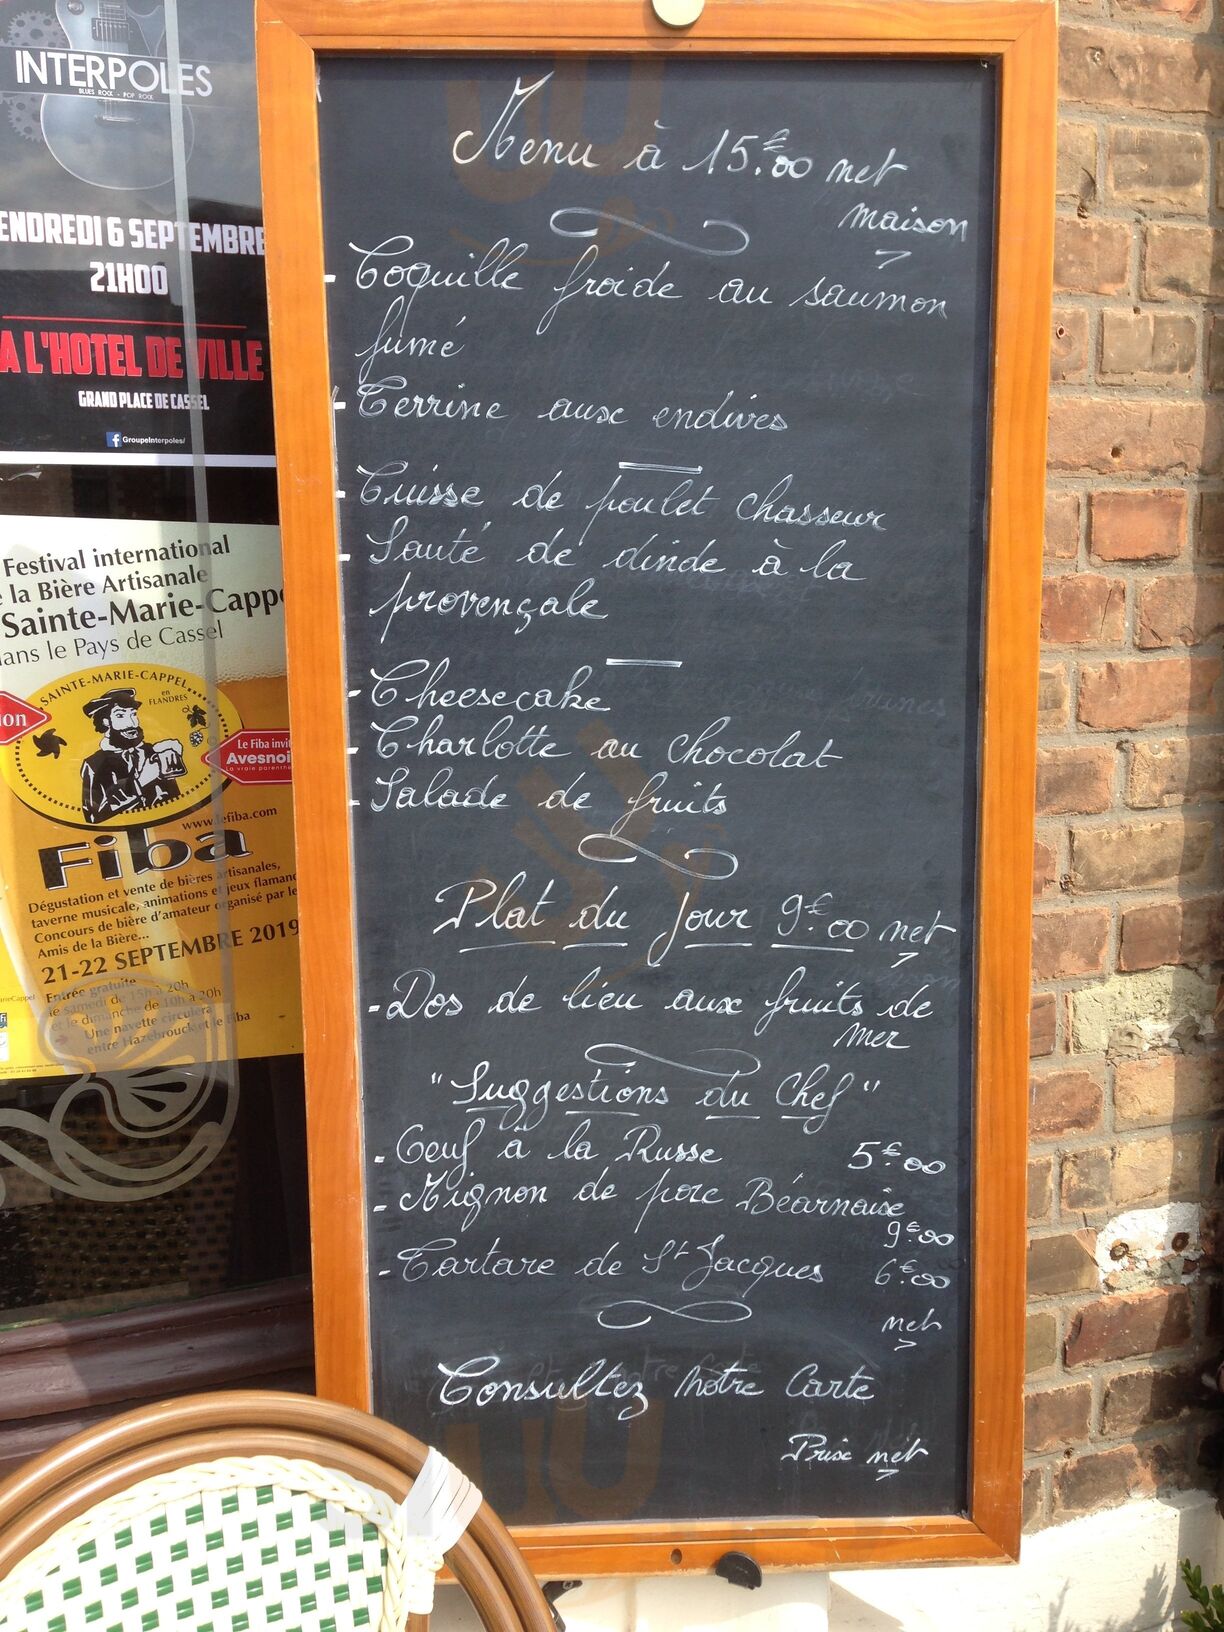 INTERPOLES
BLUES ROCK - POP ROCK
ENDREDI 6 SEPTEMBRE
21H00
A L'HOTEL DE VILLE
GRAND PLACE DE CASSEL
GroupeInterpoles/
Festival international
la Bière Artisanale
Sainte-Marie-Cappe
ans le Pays de Cassel
SAINTE-MARIE-CAPPEL
en
FLANDRES
ion
Le Fiba invi
Avesnoi
La vraie parenthè
www.lefiba.com
Fiba
Dégustation et vente de bières artisanales,
taverne musicale, animations et jeux flaman
Concours de bière d'amateur organisé par le
Amis de la Bière...
21-22 SEPTEMBRE 2019
Entrée gratuite
le samedi de 15h à 20h
et le dimanche de 10h à 20h
Une navette circulera
entre Hazebrouck et le Fiba
Menu à 15.€00 net
maison
- Coquille froide au saumon
fumé
- Terrine aux endives
- Cuisse de poulet chasseur
- Sauté de dinde à la
provençale
- Cheesecake
- Charlotte au chocolat
- Salade de fruits
Plat du jour 9.€00 net
- Dos de lieu aux fruits de
mer
"Suggestions du Chef"
- Oeuf à la Russe 5.€00
- Mignon de porc Béarnaise
9.€00
- Tartare de St Jacques 6.€00
net
Consultez notre Carte
Prix net